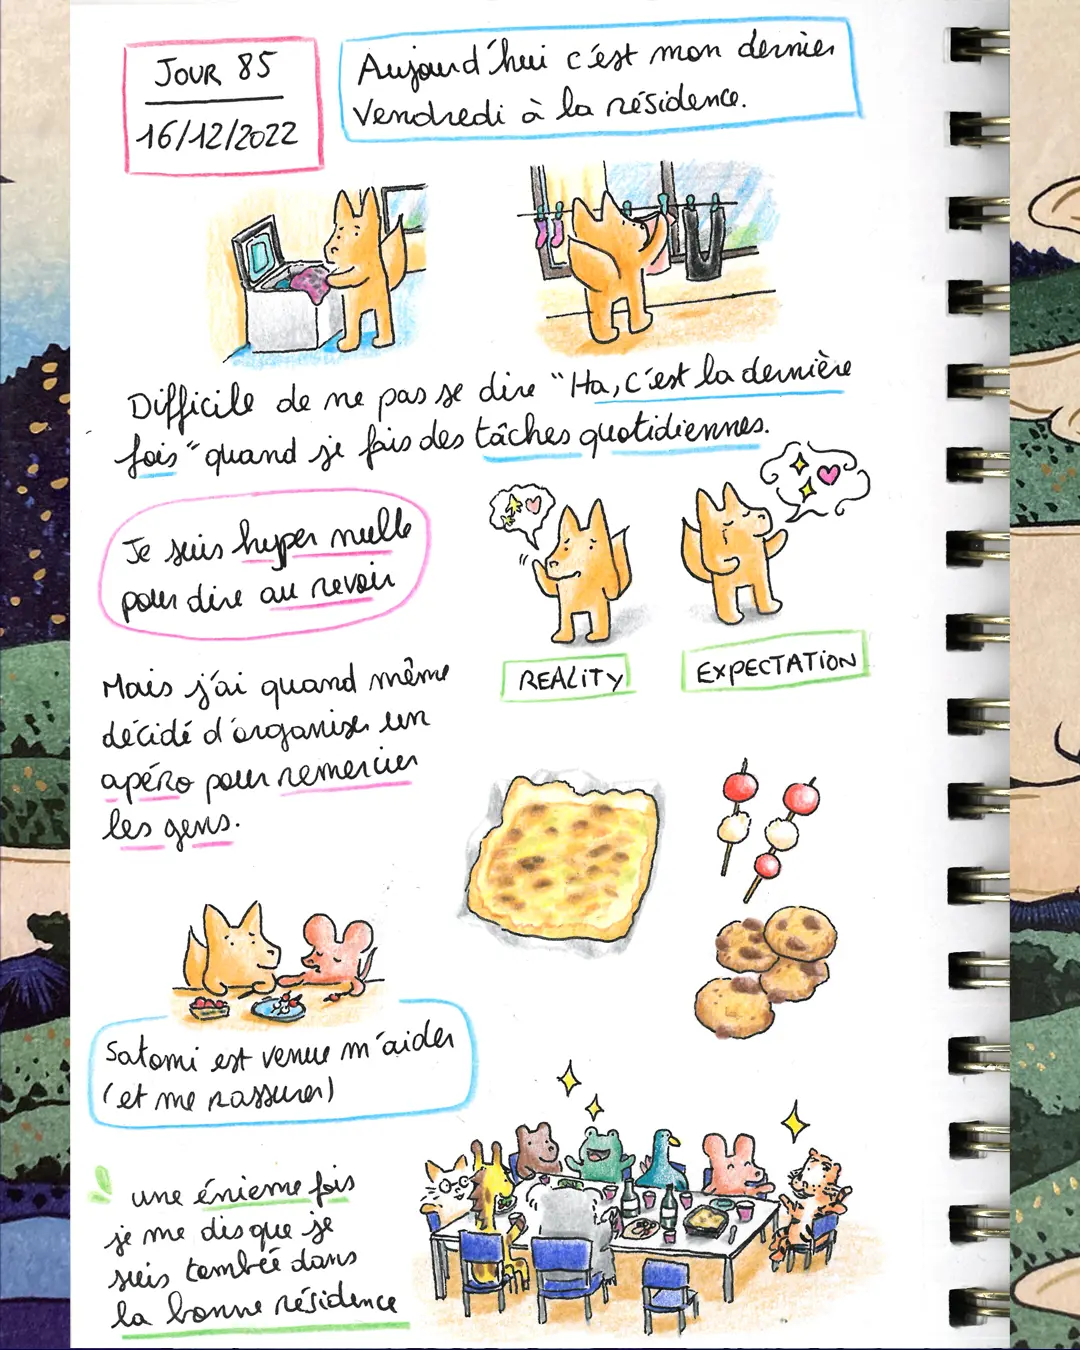 JOUR 85
16/12/2022
Aujourd'hui c'est mon dernier
Vendredi à la résidence.
Difficile de ne pas se dire "Ha, c'est la dernière
fois" quand je fais des tâches quotidiennes.
Je suis hyper nulle
pour dire au revoir
REALITY
EXPECTATION
Mais j'ai quand même
décidé d'organiser un
apéro pour remercier
les gens.
Satomi est venue m'aider
(et me rassurer)
une énième fois
je me dis que je
suis tombée dans
la bonne résidence